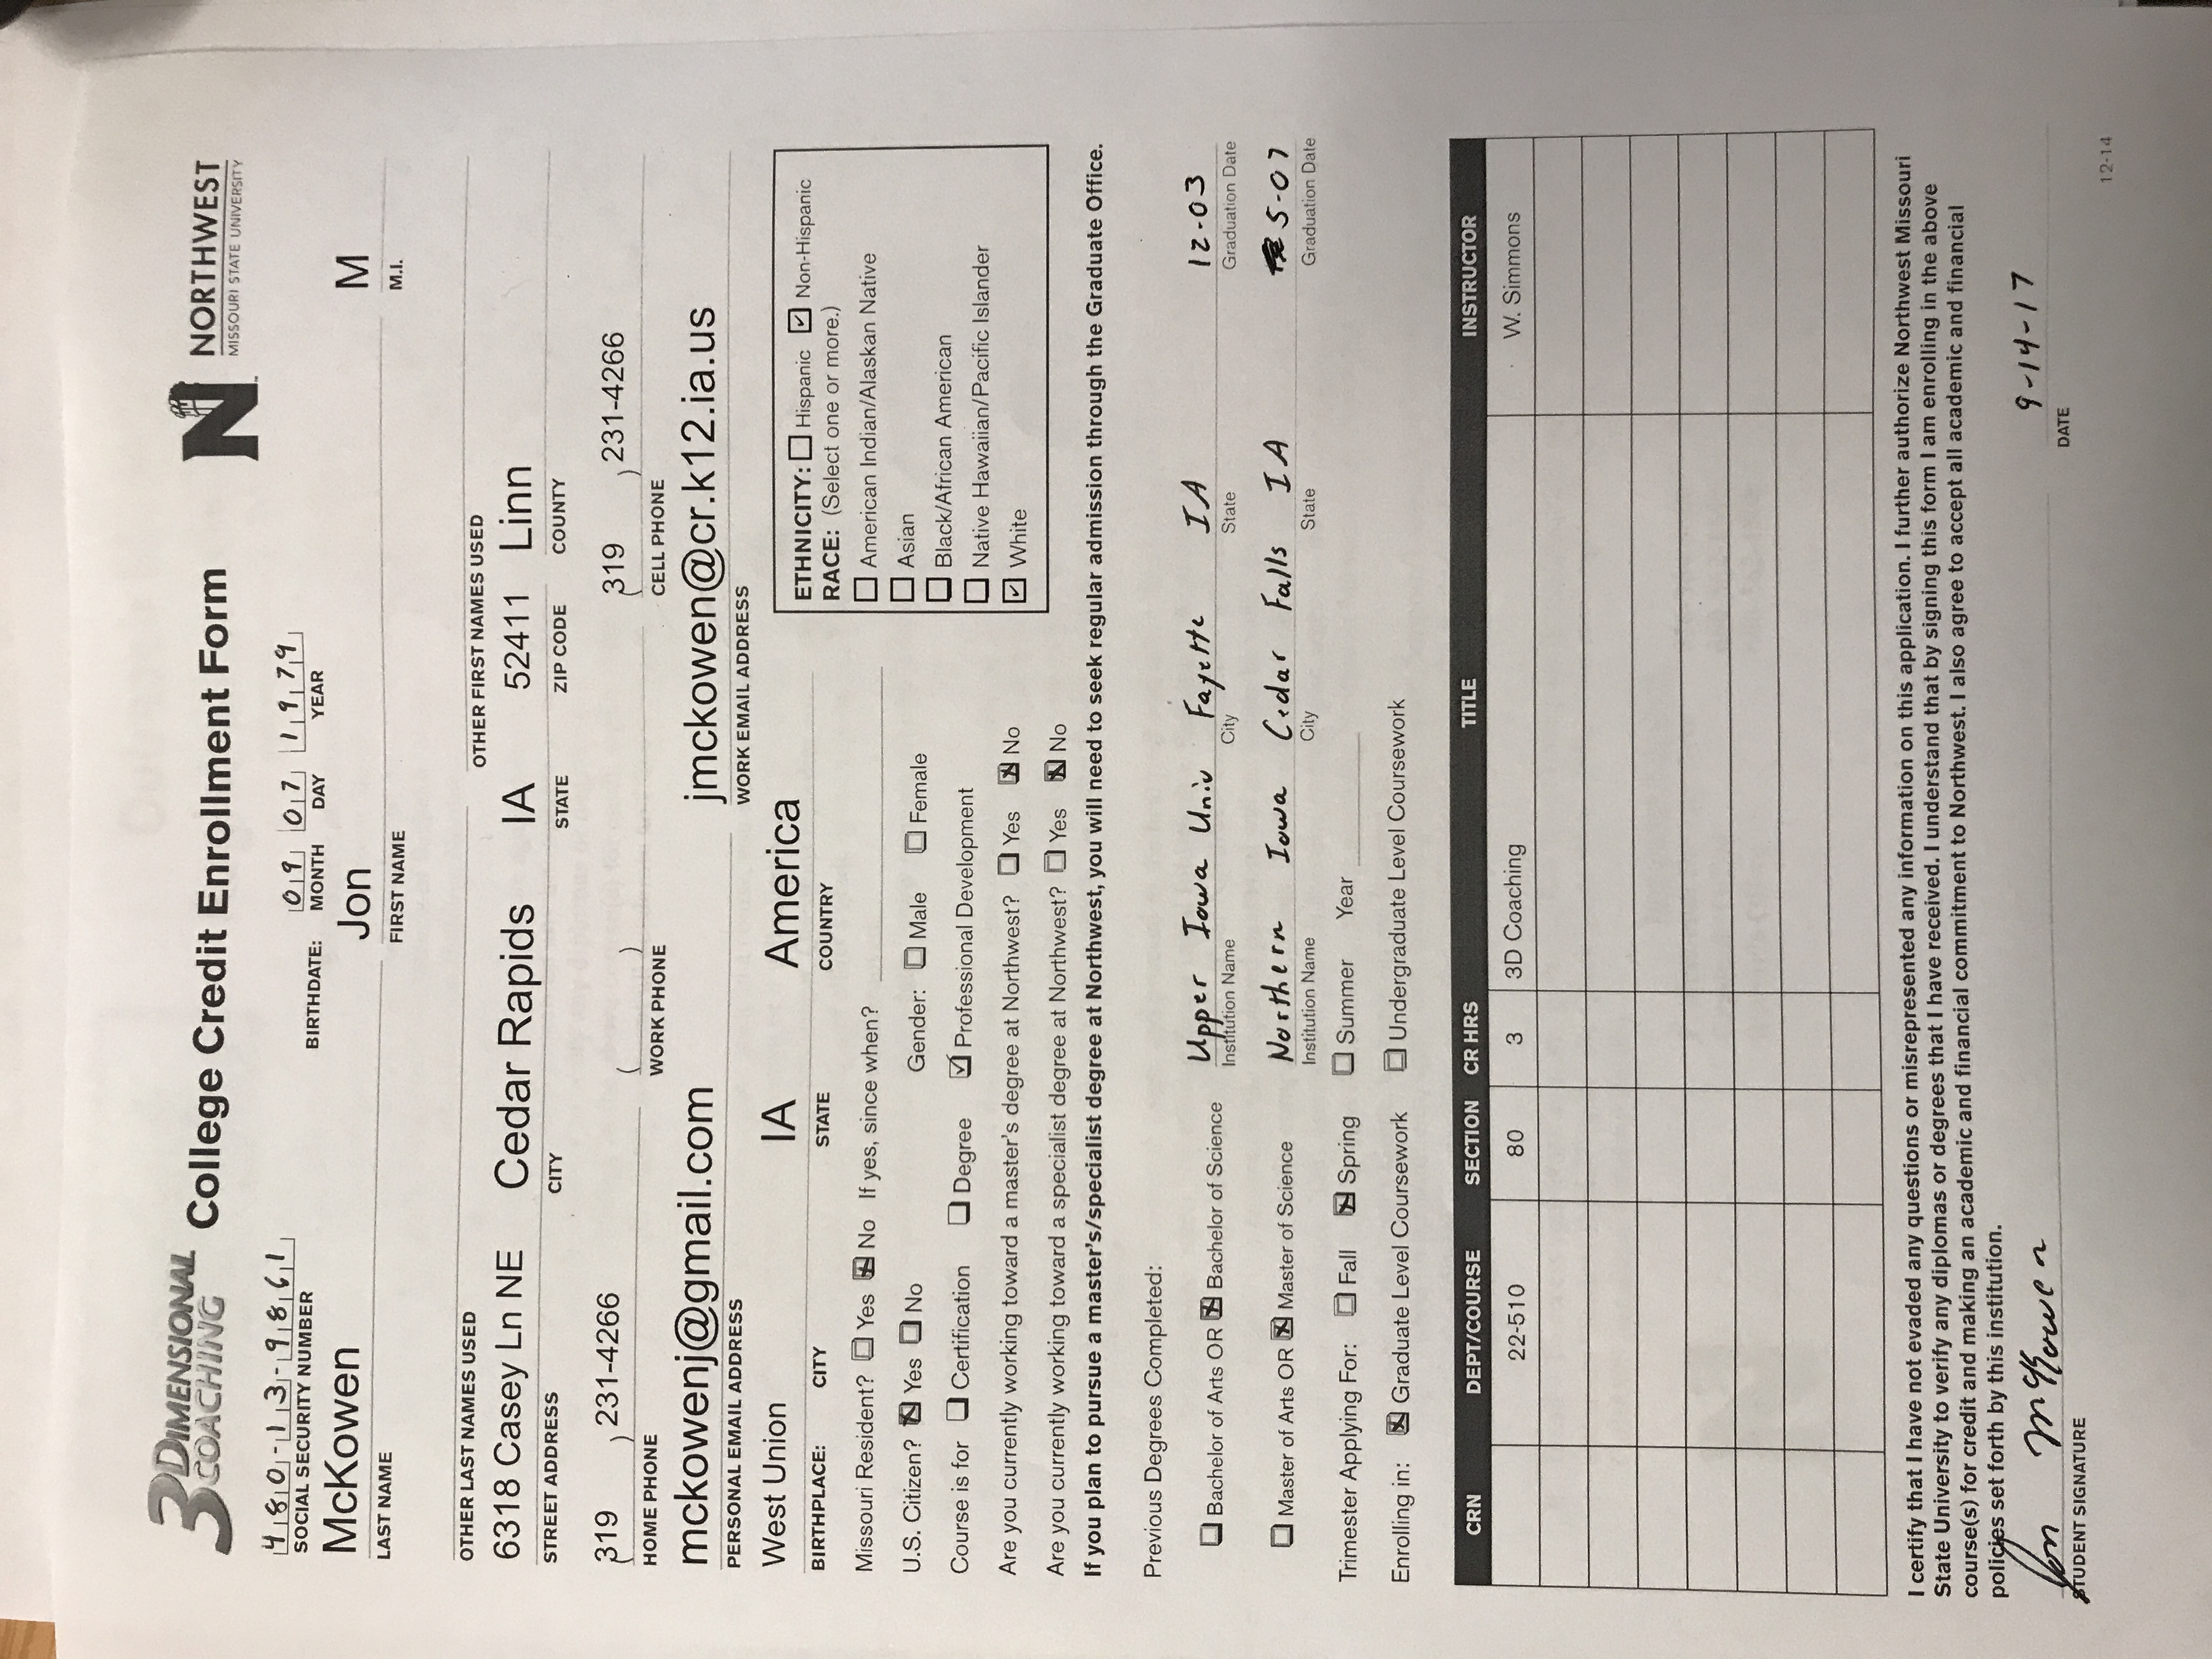 3 DIMENSIONAL COACHING College Credit Enrollment Form N NORTHWEST
MISSOURI STATE UNIVERSITY
[SSN redacted] 09 07 1979
SOCIAL SECURITY NUMBER BIRTHDATE: MONTH DAY YEAR
McKowen Jon M
LAST NAME FIRST NAME M.I.
OTHER LAST NAMES USED OTHER FIRST NAMES USED
6318 Casey Ln NE Cedar Rapids IA 52411 Linn
STREET ADDRESS CITY STATE ZIP CODE COUNTY
(319 ) 231-4266 ( ) (319 ) 231-4266
HOME PHONE WORK PHONE CELL PHONE
mckowenj@gmail.com jmckowen@cr.k12.ia.us
PERSONAL EMAIL ADDRESS WORK EMAIL ADDRESS
West Union IA America
BIRTHPLACE: CITY STATE COUNTRY
ETHNICITY: ☐ Hispanic ☑ Non-Hispanic
RACE: (Select one or more.)
☐ American Indian/Alaskan Native
☐ Asian
☐ Black/African American
☐ Native Hawaiian/Pacific Islander
☑ White
Missouri Resident? ☐ Yes ☒ No If yes, since when?
U.S. Citizen? ☒ Yes ☐ No Gender: ☐ Male ☐ Female
Course is for ☐ Certification ☐ Degree ☑ Professional Development
Are you currently working toward a master's degree at Northwest? ☐ Yes ☒ No
Are you currently working toward a specialist degree at Northwest? ☐ Yes ☒ No
If you plan to pursue a master's/specialist degree at Northwest, you will need to seek regular admission through the Graduate Office.
Previous Degrees Completed:
☐ Bachelor of Arts OR ☒ Bachelor of Science Upper Iowa Univ Fayette IA 12-03
Institution Name City State Graduation Date
☐ Master of Arts OR ☒ Master of Science Northern Iowa Cedar Falls IA 5-07
Institution Name City State Graduation Date
Trimester Applying For: ☐ Fall ☒ Spring ☐ Summer Year
Enrolling in: ☒ Graduate Level Coursework ☐ Undergraduate Level Coursework
CRN DEPT/COURSE SECTION CR HRS TITLE INSTRUCTOR
22-510 80 3 3D Coaching W. Simmons
I certify that I have not evaded any questions or misrepresented any information on this application. I further authorize Northwest Missouri
State University to verify any diplomas or degrees that I have received. I understand that by signing this form I am enrolling in the above
course(s) for credit and making an academic and financial commitment to Northwest. I also agree to accept all academic and financial
policies set forth by this institution.
Jon McKowen 9-14-17
STUDENT SIGNATURE DATE
12-14